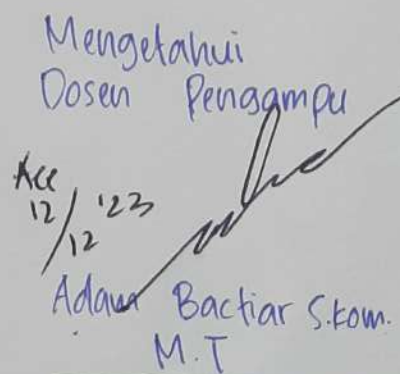 Mengetahui
Dosen Pengampu
Acc
12/12 '23
Adam Bactiar S.kom.
M.T